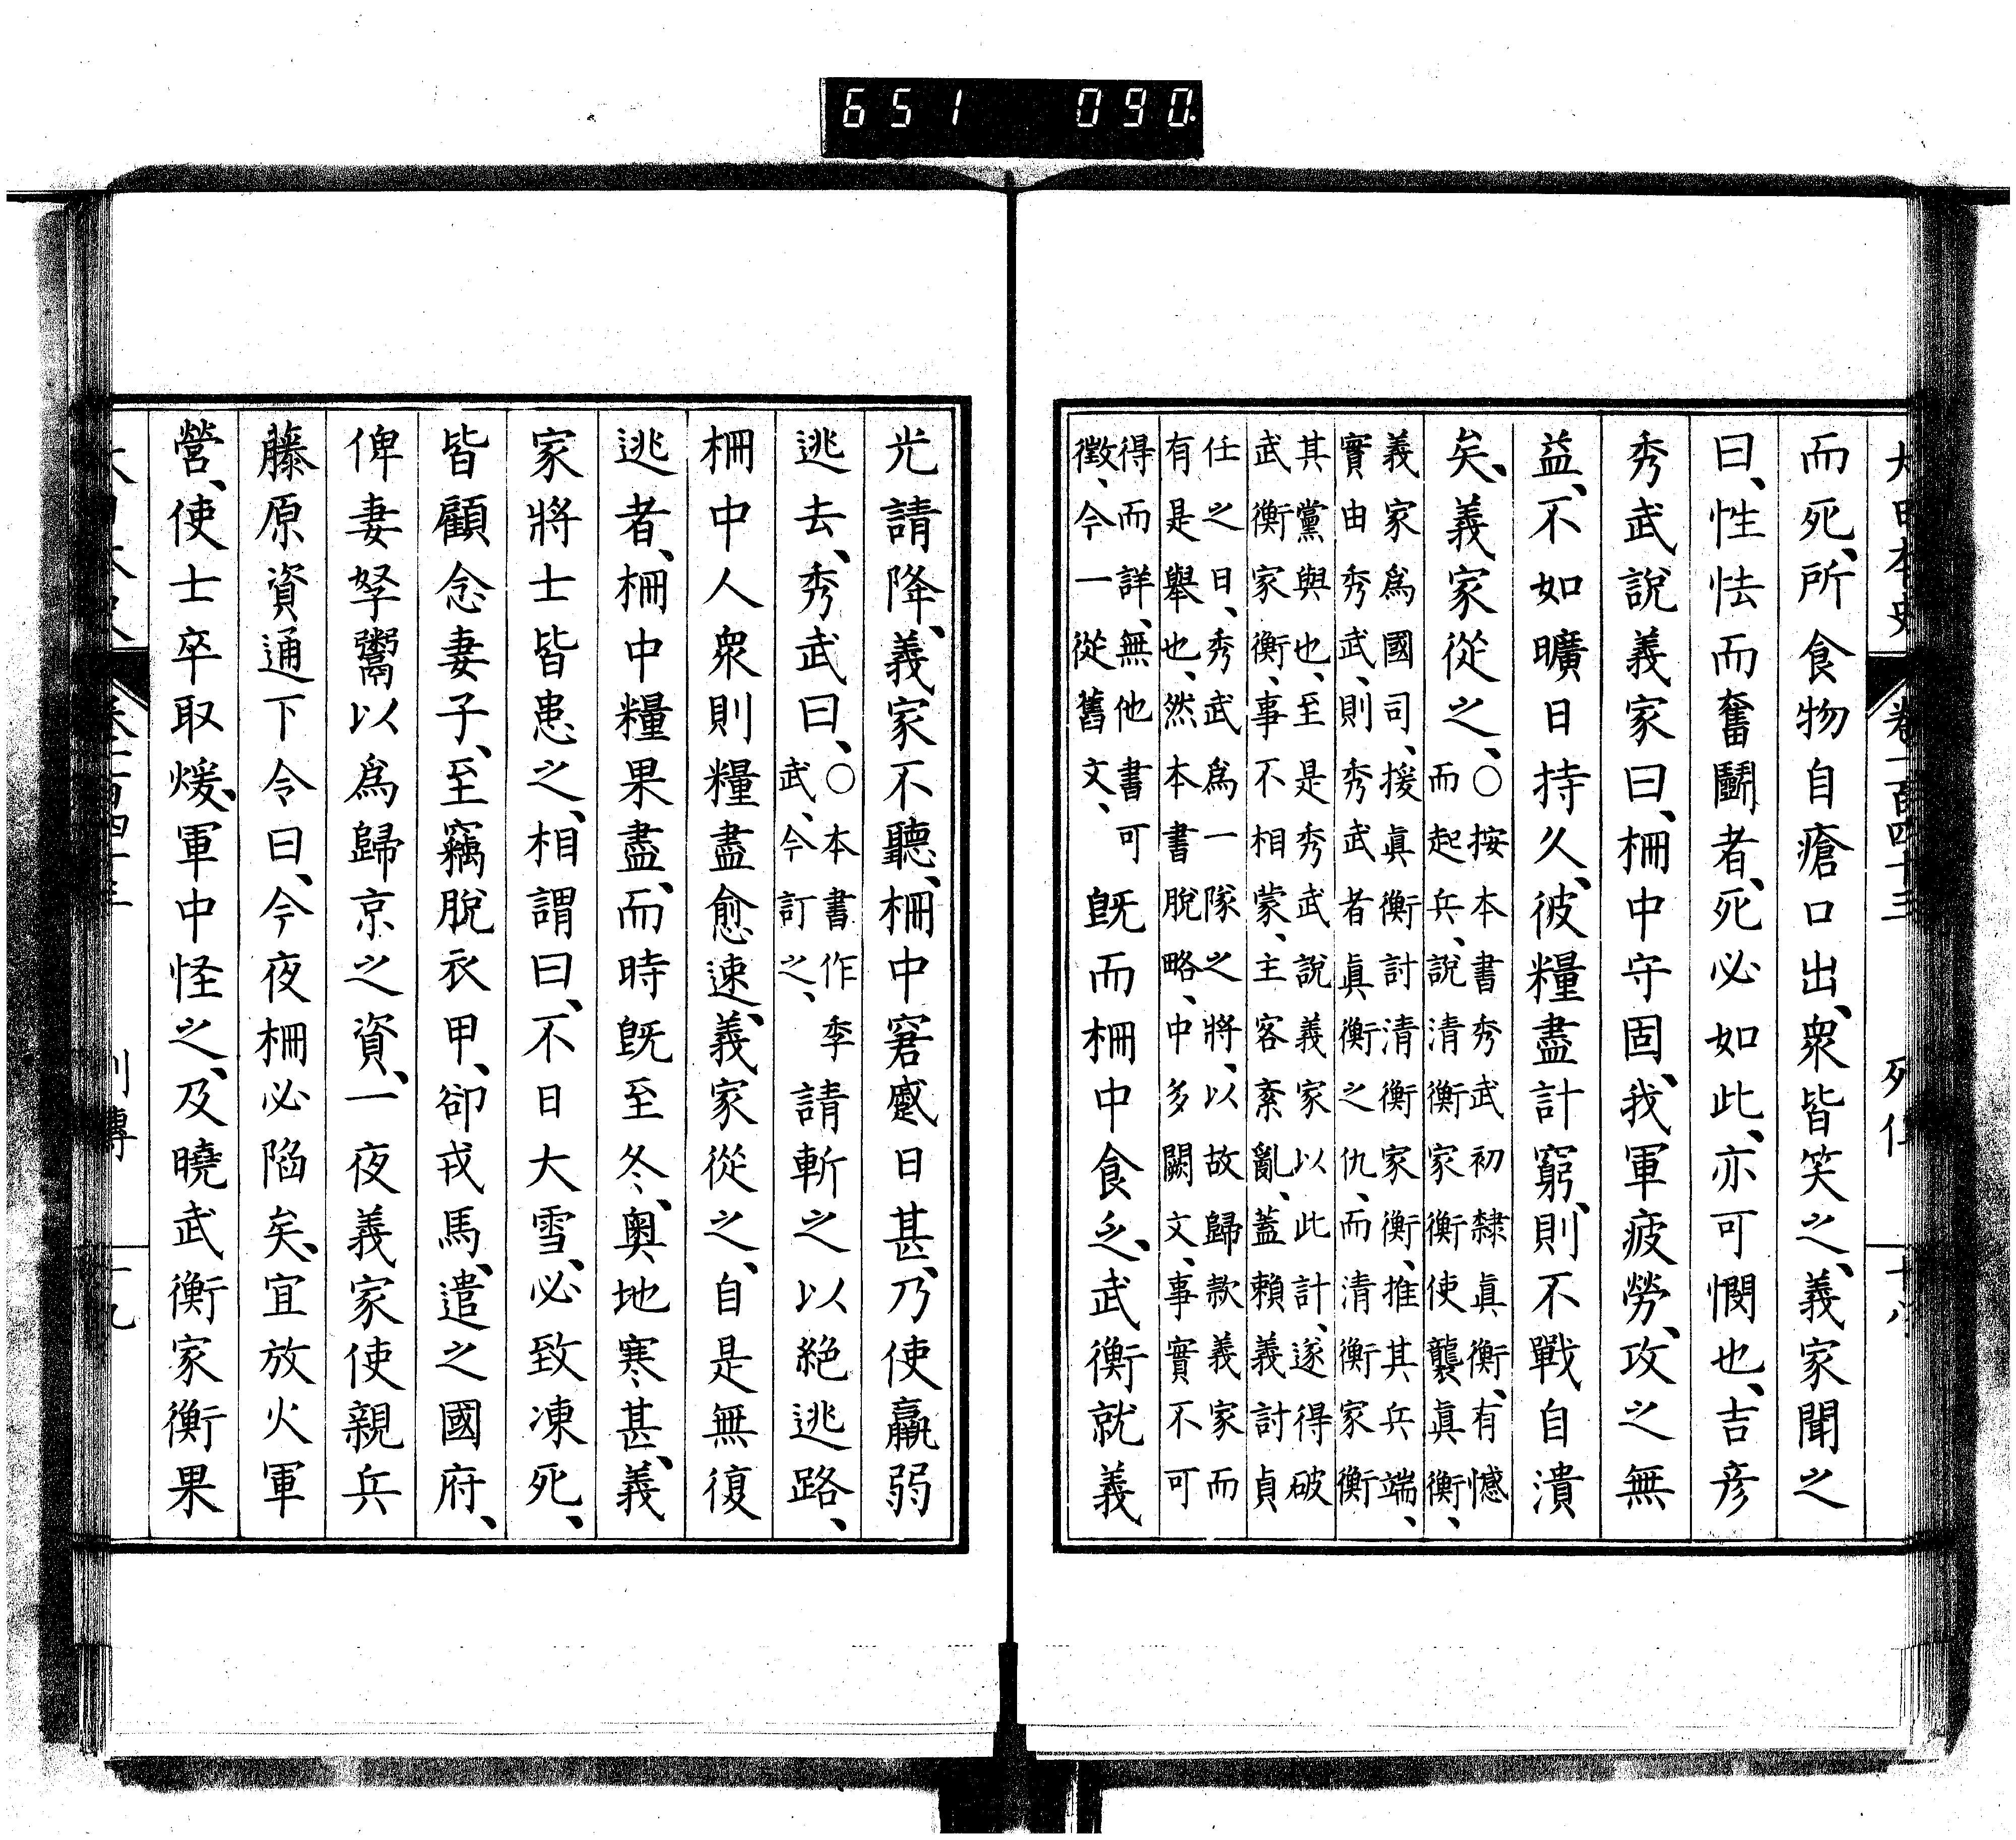 651 090
大日本史 卷一百四十三 列傳
而死、所食物自瘡口出、衆皆笑之、義家聞之
曰、性怯而奮鬭者、死必如此、亦可憫也、吉彦
秀武說義家曰、柵中守固、我軍疲勞、攻之無
益、不如曠日持久、彼糧盡計窮、則不戰自潰
矣、義家從之、○按本書秀武初隸眞衡、有憾
而起兵、說清衡家衡使襲眞衡、
義家爲國司、援眞衡討清衡家衡、推其兵端、
實由秀武、則秀武者眞衡之仇、而清衡家衡
其黨與也、至是秀武說義家以此計、遂得破
武衡家衡、事不相蒙、主客紊亂、蓋賴義討貞
任之日、秀武爲一隊之將、以故歸款義家而
有是擧也、然本書脫略、中多闕文、事實不可
得而詳、無他書可
徵、今一從舊文、
旣而柵中食乏、武衡就義
光請降、義家不聽、柵中窘蹙日甚、乃使羸弱
逃去、秀武曰、○本書作季
武、今訂之、
請斬之以絕逃路、
柵中人衆則糧盡愈速、義家從之、自是無復
逃者、柵中糧果盡、而時旣至冬、奧地寒甚、義
家將士皆患之、相謂曰、不日大雪、必致凍死、
皆顧念妻子、至竊脫衣甲、卻戎馬、遣之國府、
俾妻孥鬻以爲歸京之資、一夜義家使親兵
藤原資通下令曰、今夜柵必陷矣、宜放火軍
營、使士卒取煖、軍中怪之、及曉武衡家衡果
卷一百四十三 列傳 十九